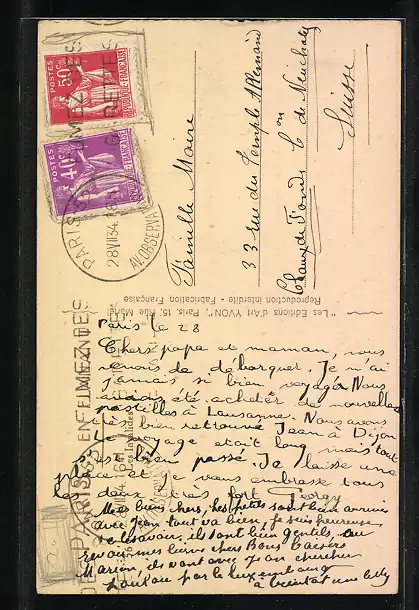 POSTES
50c.
REPUBLIQUE FRANÇAISE
POSTES
40c.
REPUBLIQUE FRANÇAISE
PARIS
28 VII 34
AV. OBSERVA
Famille Maire
33 rue des Temple Allemand
Chaux de Fonds Cton de Neuchatel
Suisse
"Les Editions d'Art YVON", Paris, 15, Rue Martel
Reproduction interdite - Fabrication Française
Paris le 28
Chers papa et maman, nous
venons de débarquer. Je n'ai
jamais si bien voyagé. Nous
avons été acheter de nouvelles
pastilles à Lausanne. Nous avons
très bien retrouvé Jean à Dijon
voyage etait long mais tout
s'est bien passé. Je laisse une
place et je vous embrasse tous
les deux très fort
Mes biens chers, les petits sont bien arrivés
avec Jean tout va bien, je suis heureuse
de les avoir, ils sont bien gentils, au
revoir mes biens chers Bons Baisers
ils vont avec Jean chercher
par le Luxembourg